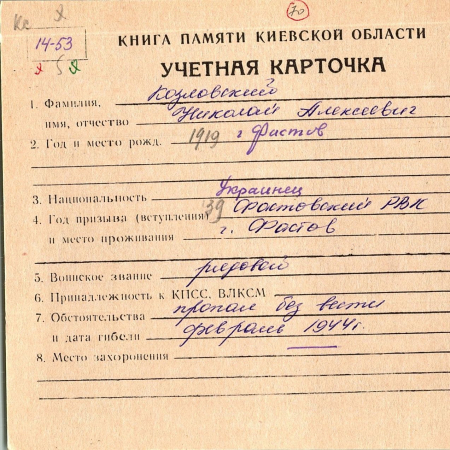 Кс
70
14-53
КНИГА ПАМЯТИ КИЕВСКОЙ ОБЛАСТИ
УЧЕТНАЯ КАРТОЧКА
1. Фамилия, Козловский
имя, отчество Николай Алексеевич
2. Год и место рожд. 1919 г Фастов
3. Национальность Украинец
4. Год призыва (вступления) 39 Фастовский РВК
и место проживания г. Фастов
5. Воинское звание рядовой
6. Принадлежность к КПСС, ВЛКСМ
7. Обстоятельства пропал без вести
и дата гибели февраль 1944г.
8. Место захоронения